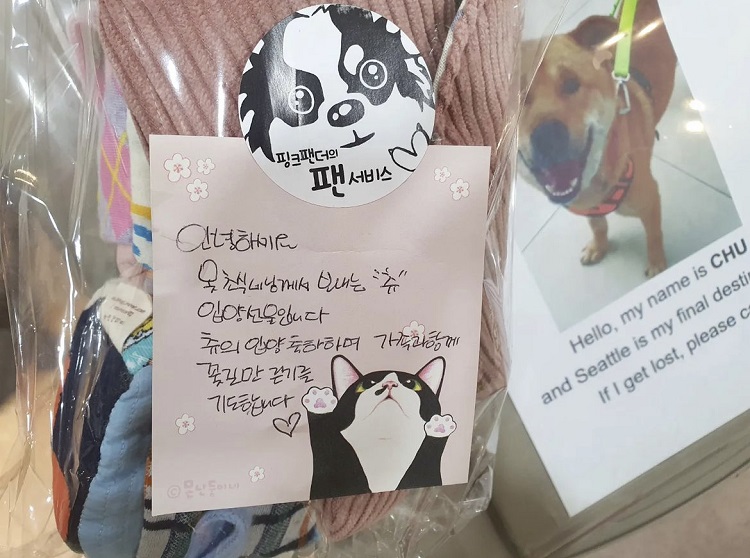 핑크팬더의
팬 서비스
안녕하세요
옷 초식네님께서 보내는 "츄"
입양선물입니다
츄의 입양 축하하며 가족과 함께
꽃길만 걷기를
기도합니다
©문난둥이네
Hello, my name is CHU
and Seattle is my final desti
If I get lost, please ca